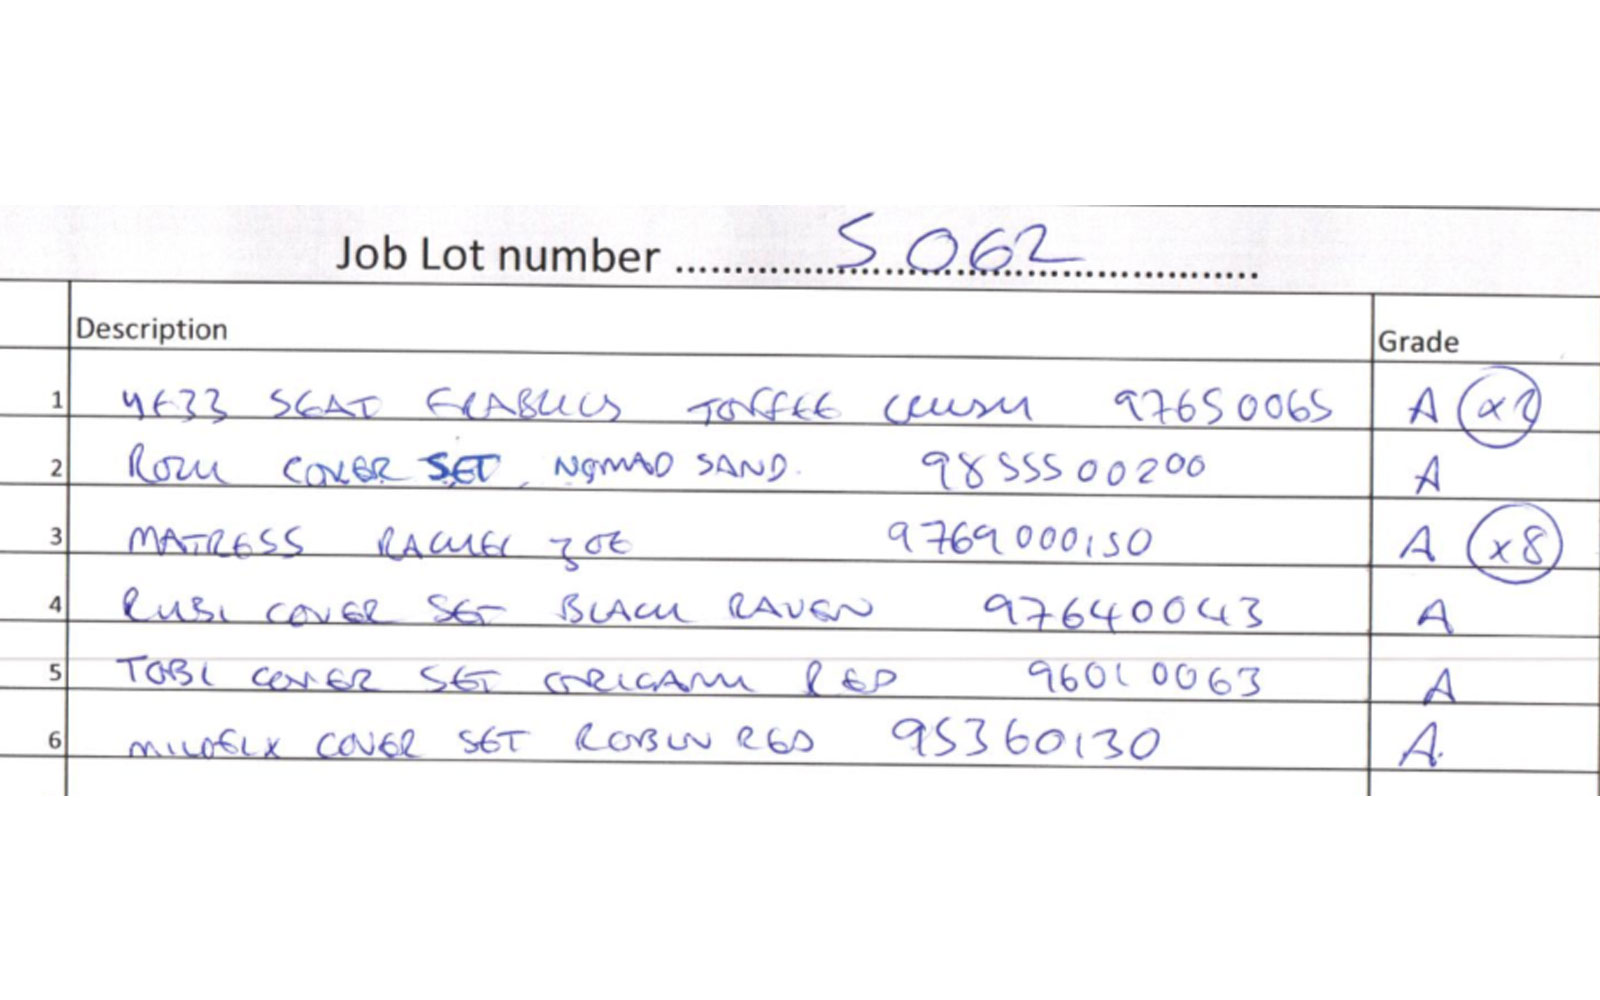 Job Lot number ........ S 062
Description Grade
1 YEZZ SEAT FRABRICS TOFFEE CRUSH 97650065 A
2 RORU COVER SET NOMAD SAND. 9855500200 A
3 MATRESS RACHEL ZOE 9769000150 A x8
4 RUBI COVER SET BLACK RAVEN 97640043 A
5 TOBI COVER SET ORIGAMI RED 96010063 A
6 COVER SET ROBIN RED 95360130 A.